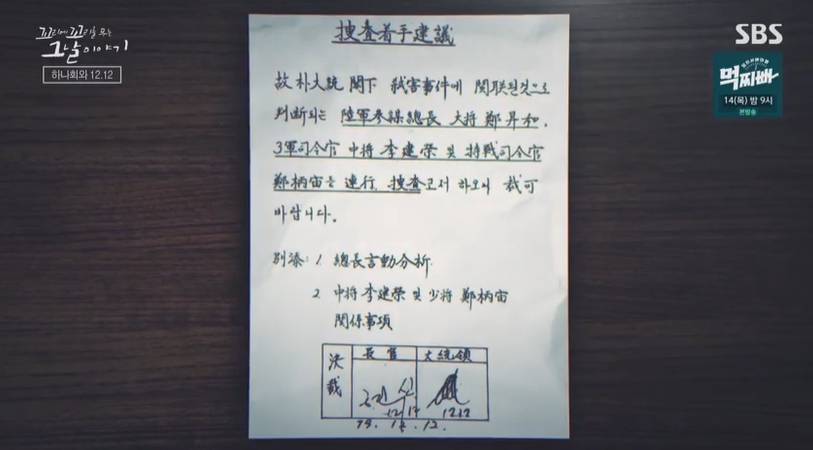 꼬리에 꼬리를 무는
그날 이야기
하나회와 12.12
SBS
먹찌빠
14(목) 밤 9시
본방송
捜査着手建議
故 朴大統 閣下 弑害事件에 関联된것으로
判断되는 陸軍參謀總長 大将 鄭昇和,
3軍司令官 中将 李建榮 및 特戰司令官
鄭柄宙를 連行 捜査코저 하오니 裁可
바랍니다.
別添: 1. 總長言動分析
2. 中将 李建榮 및 少将 鄭柄宙
関係事項
決裁
長官
大統領
12 12
12 12
79. 12. 12.